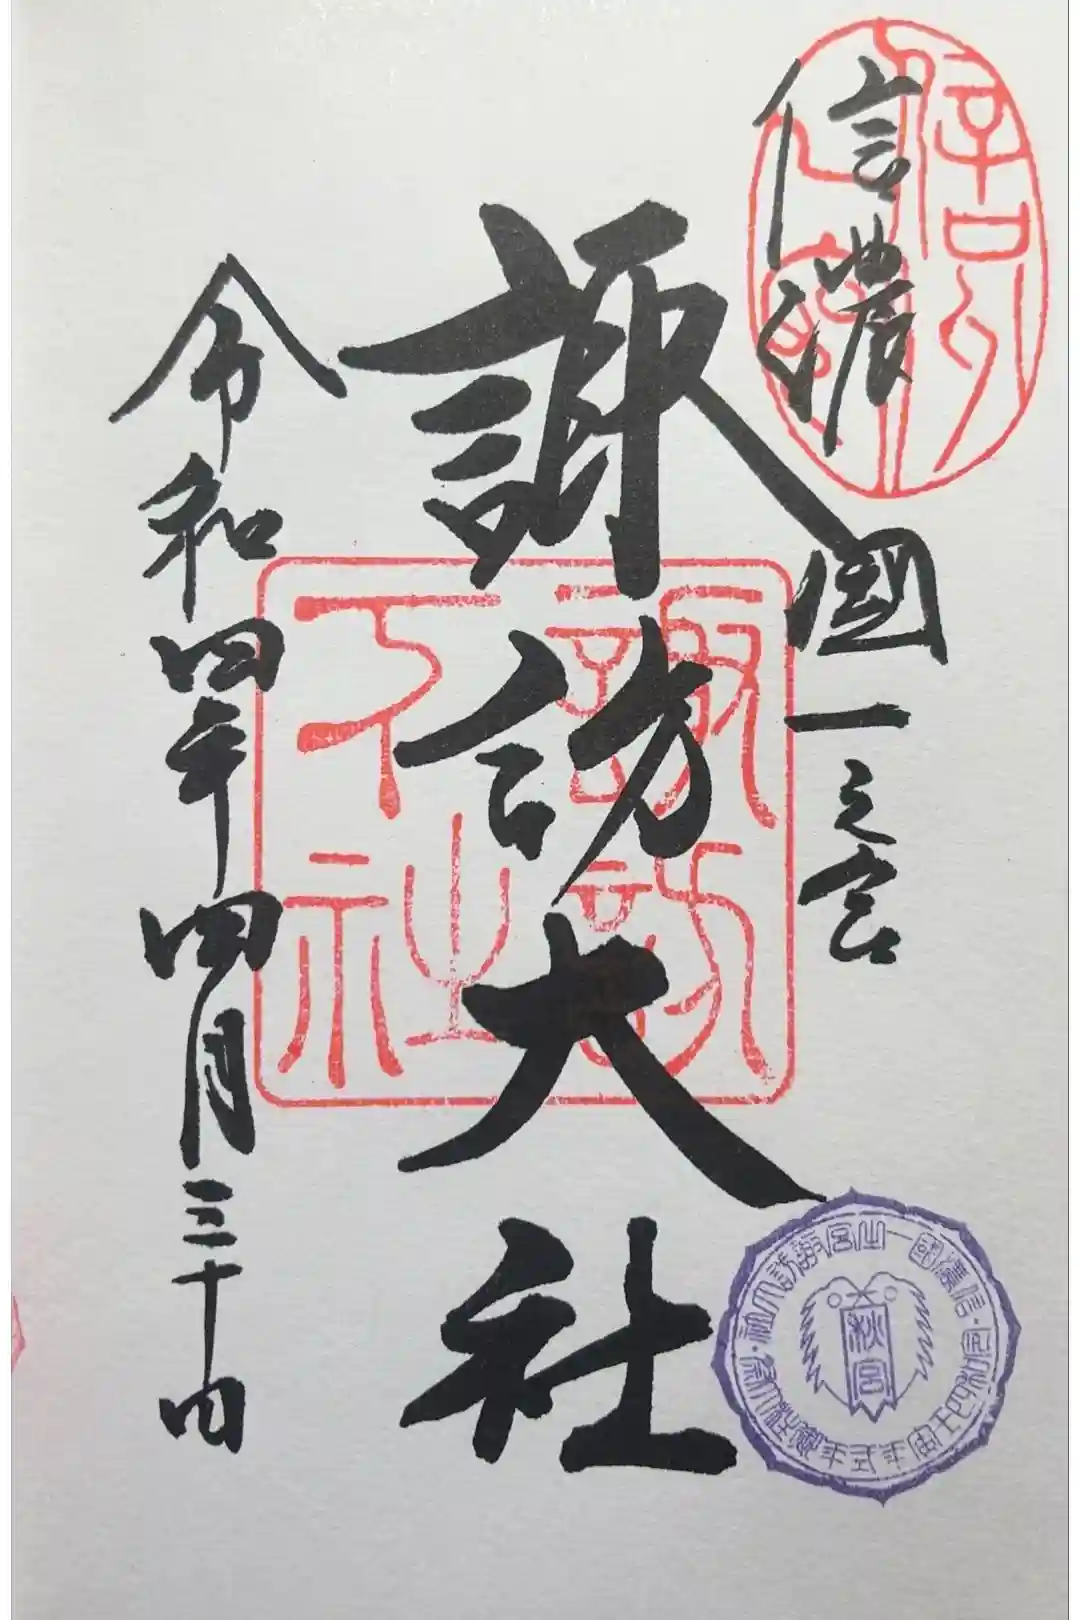 信濃國一之宮
諏訪大社
令和四年四月三十日
諏訪
下社
信濃國一之宮諏訪大社
秋宮